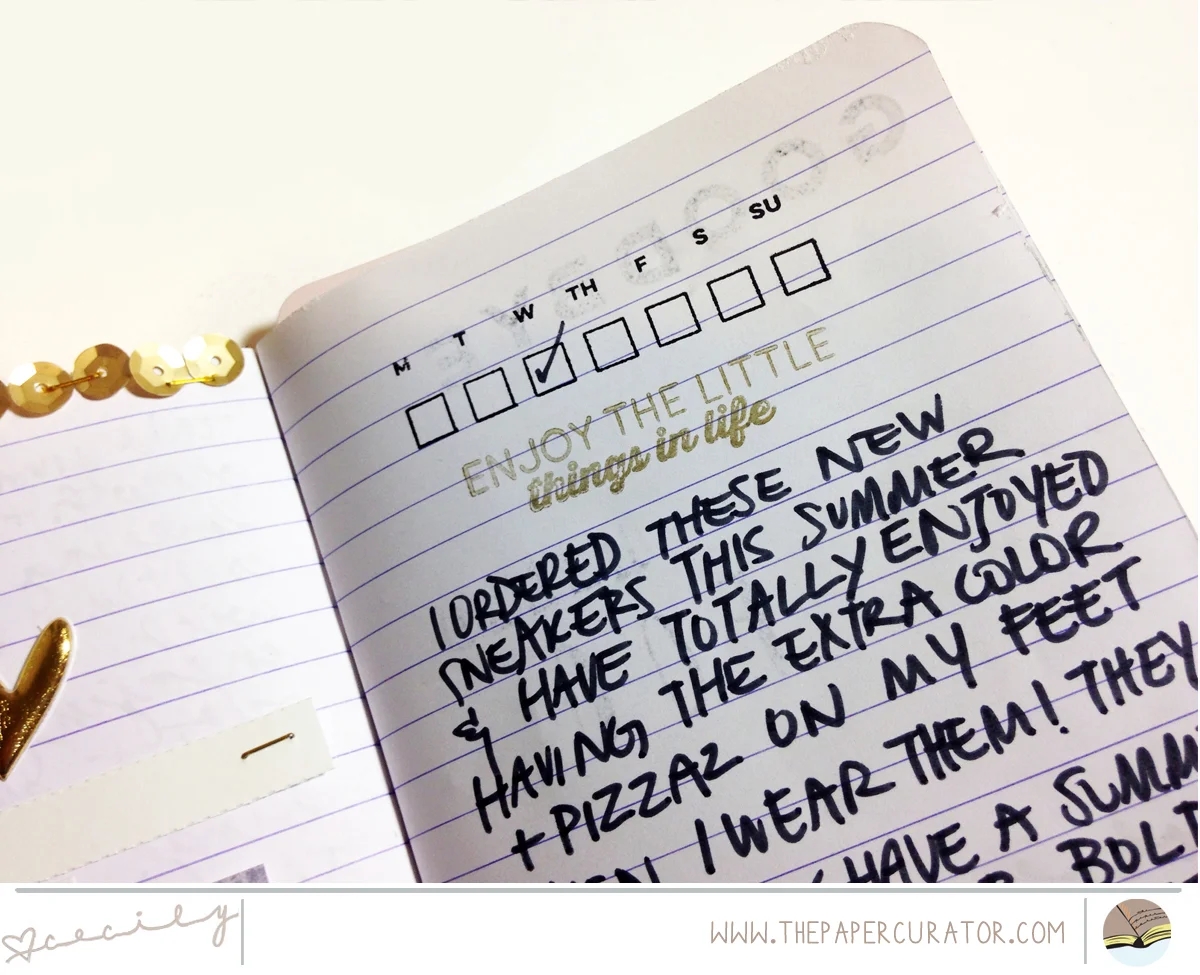 GOODBYE
M T W TH F S SU
ENJOY THE LITTLE
things in life
I ORDERED THESE NEW
SNEAKERS THIS SUMMER
& HAVE TOTALLY ENJOYED
HAVING THE EXTRA COLOR
+ PIZZAZ ON MY FEET
I WEAR THEM! THEY
HAVE A
BOLD
cecily
WWW.THEPAPERCURATOR.COM